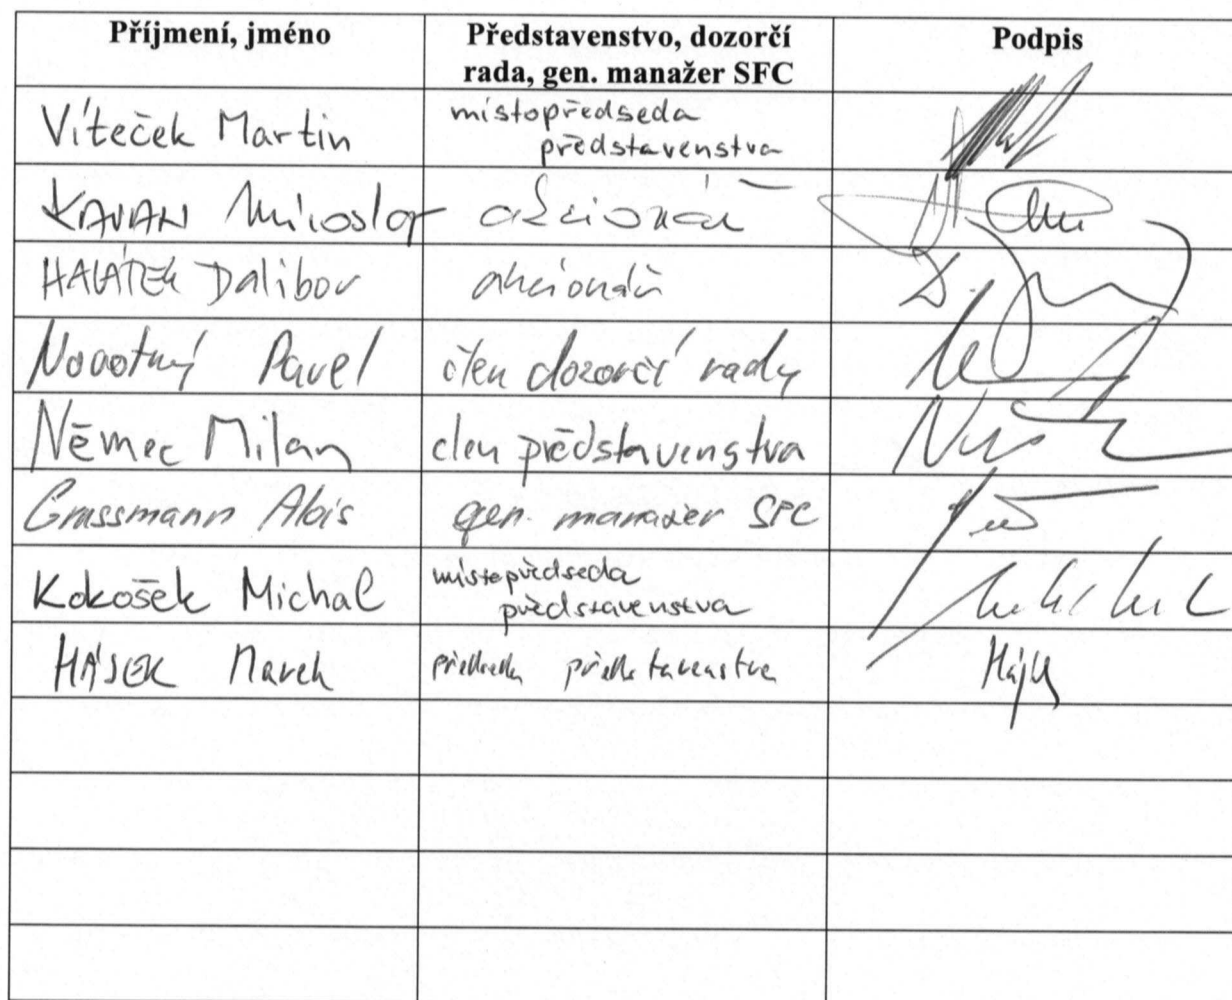 Příjmení, jméno
Představenstvo, dozorčí
rada, gen. manažer SFC
Podpis
Víteček Martin
místopředseda
představenstva
KAVAN Miroslav
akcionář
HALÁTEK Dalibor
akcionář
Novotný Pavel
člen dozorčí rady
Němec Milan
člen představenstva
Grassmann Alois
gen. manažer SFC
Kokošek Michal
místopředseda
představenstva
HÁJEK Marek
předseda představenstva
Hájek